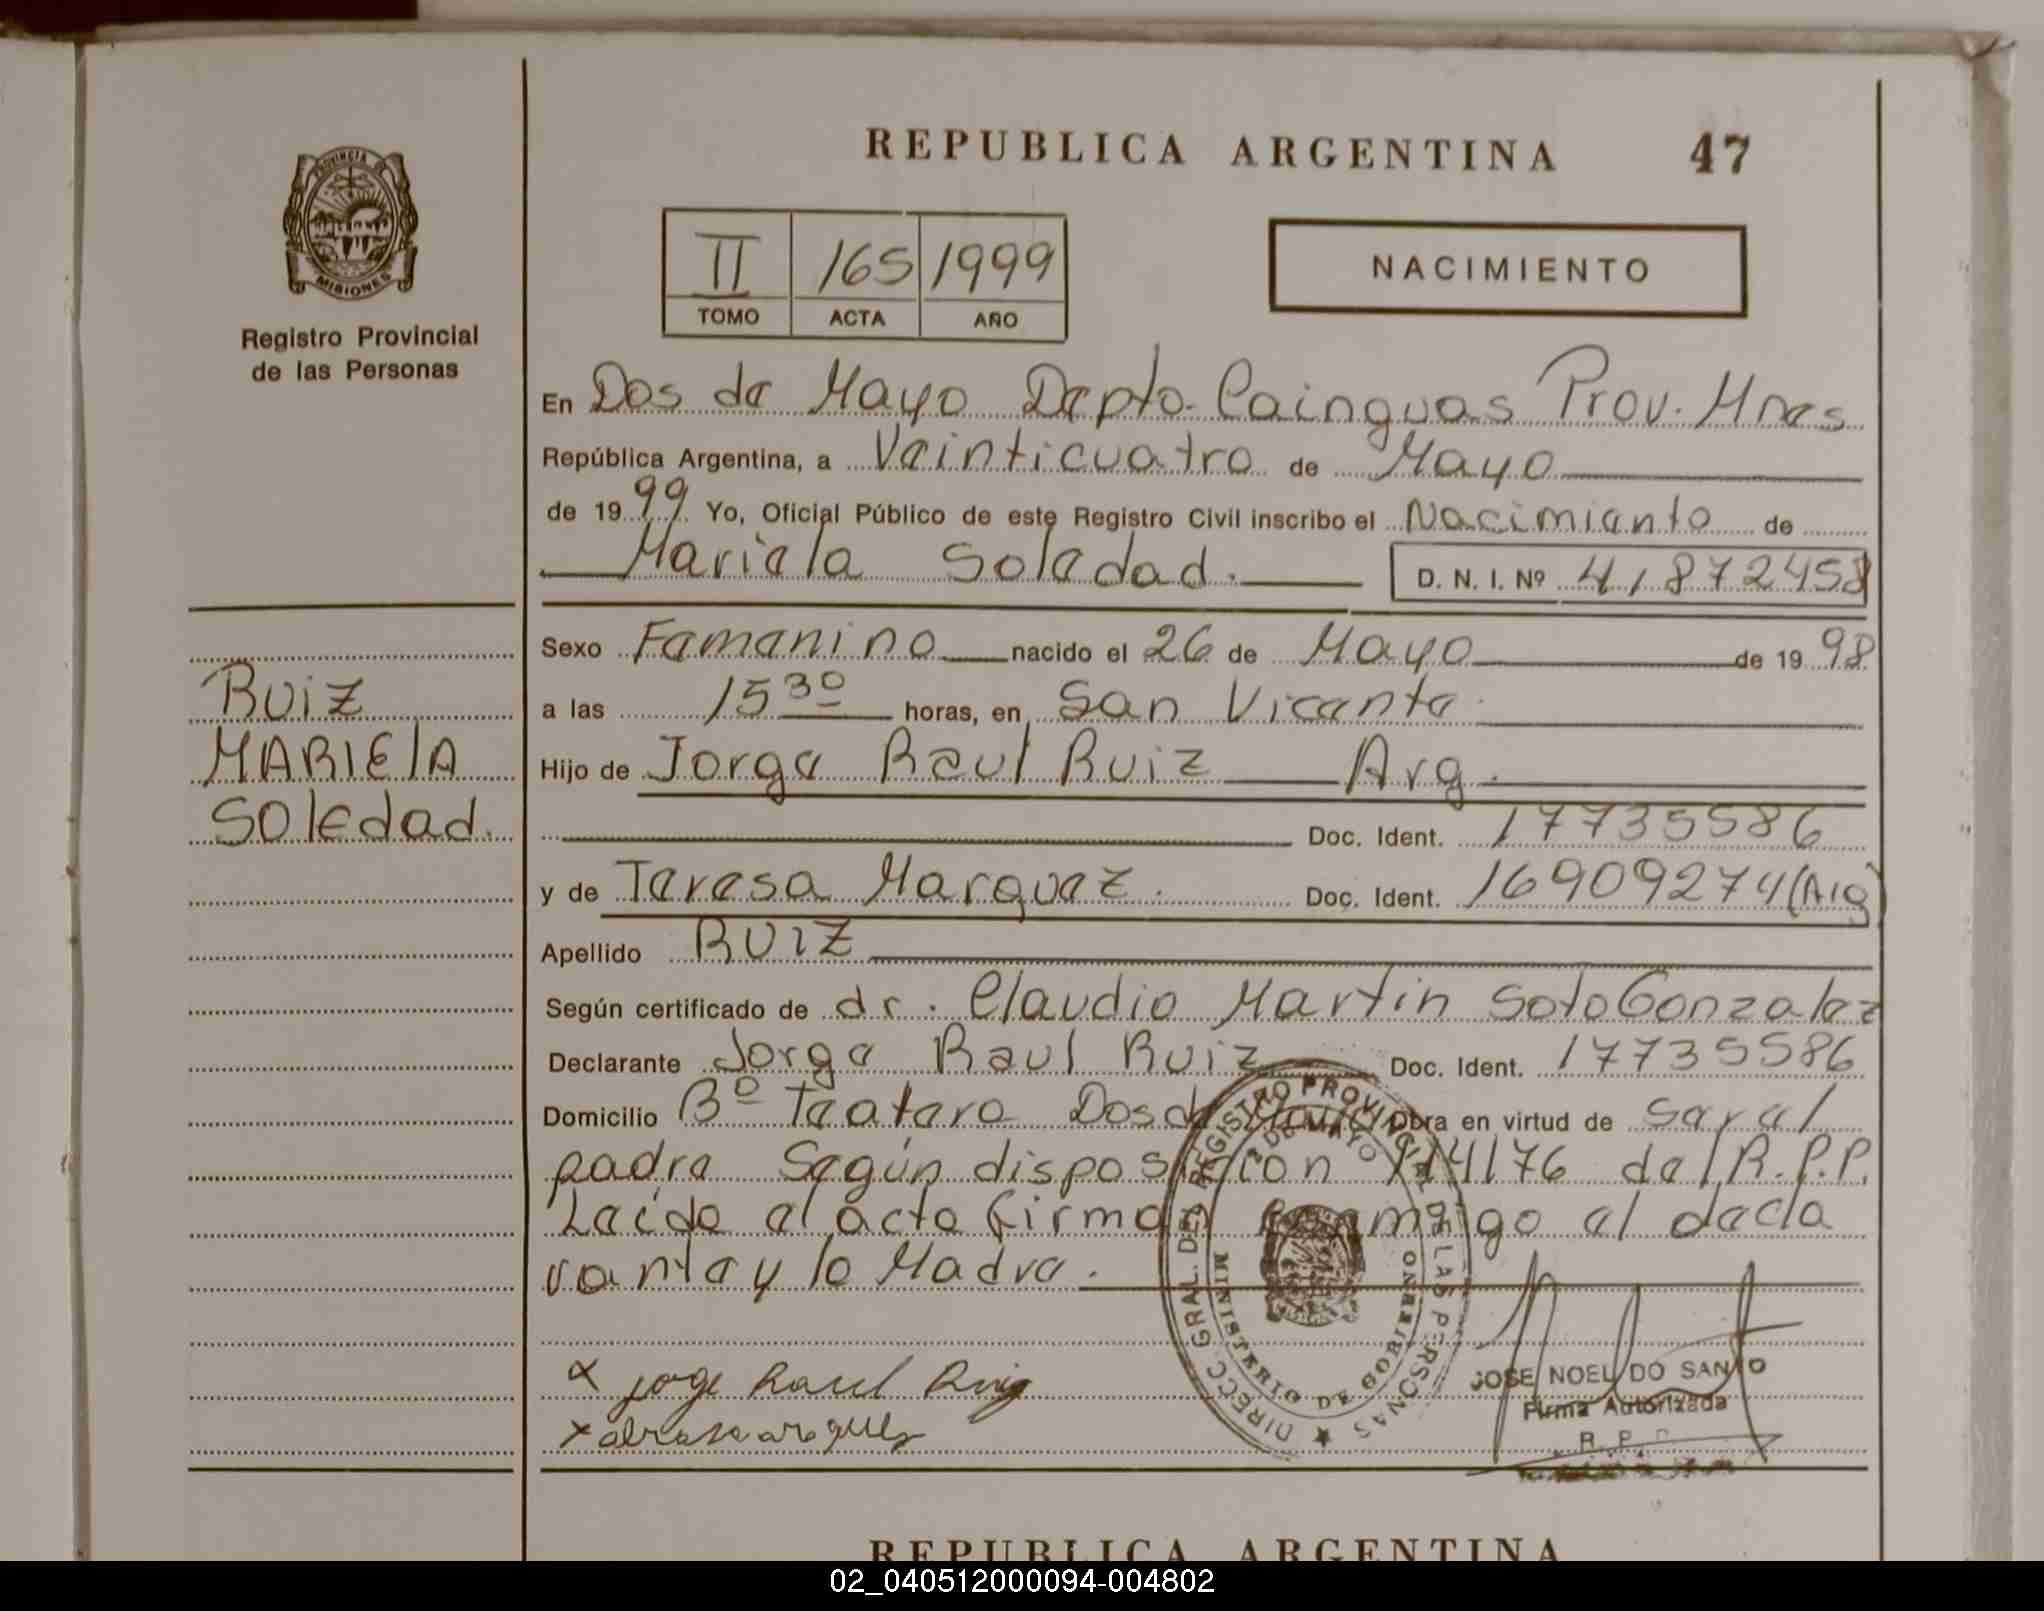 REPUBLICA ARGENTINA 47
PROVINCIA DE
MISIONES
Registro Provincial
de las Personas
II 165 1999
TOMO ACTA AÑO
NACIMIENTO
En Dos de Mayo Depto. Cainguas Prov. Mnes
República Argentina, a Veinticuatro de Mayo
de 1999 Yo, Oficial Público de este Registro Civil inscribo el Nacimiento de
Mariela Soledad. D. N. I. Nº 41872458
Sexo Femenino nacido el 26 de Mayo de 1998
a las 15 30 horas, en San Vicente
Hijo de Jorge Raul Ruiz Arg.
Doc. Ident. 17735586
y de Teresa Marquez. Doc. Ident. 16909274 (Arg)
Apellido RUIZ
Según certificado de dr. Claudio Martin Soto Gonzalez
Declarante Jorge Raul Ruiz Doc. Ident. 17735586
Domicilio Bº Teatero Dos de Mayo Obra en virtud de ser el
padre Según disposición 114/76 del R.P.P.
Leída el acta firman conmigo el decla
rante y la Madre.
RUIZ
MARIELA
SOLEDAD.
x jorge Raul Ruiz
DIRECC. GRAL. DEL REGISTRO PROVINCIAL DE LAS PERSONAS
2 DE MAYO
MINISTERIO DE GOBIERNO
JOSE NOEL DO SANTO
Firma Autorizada
R. P. P.
REPUBLICA ARGENTINA
02_040512000094-004802